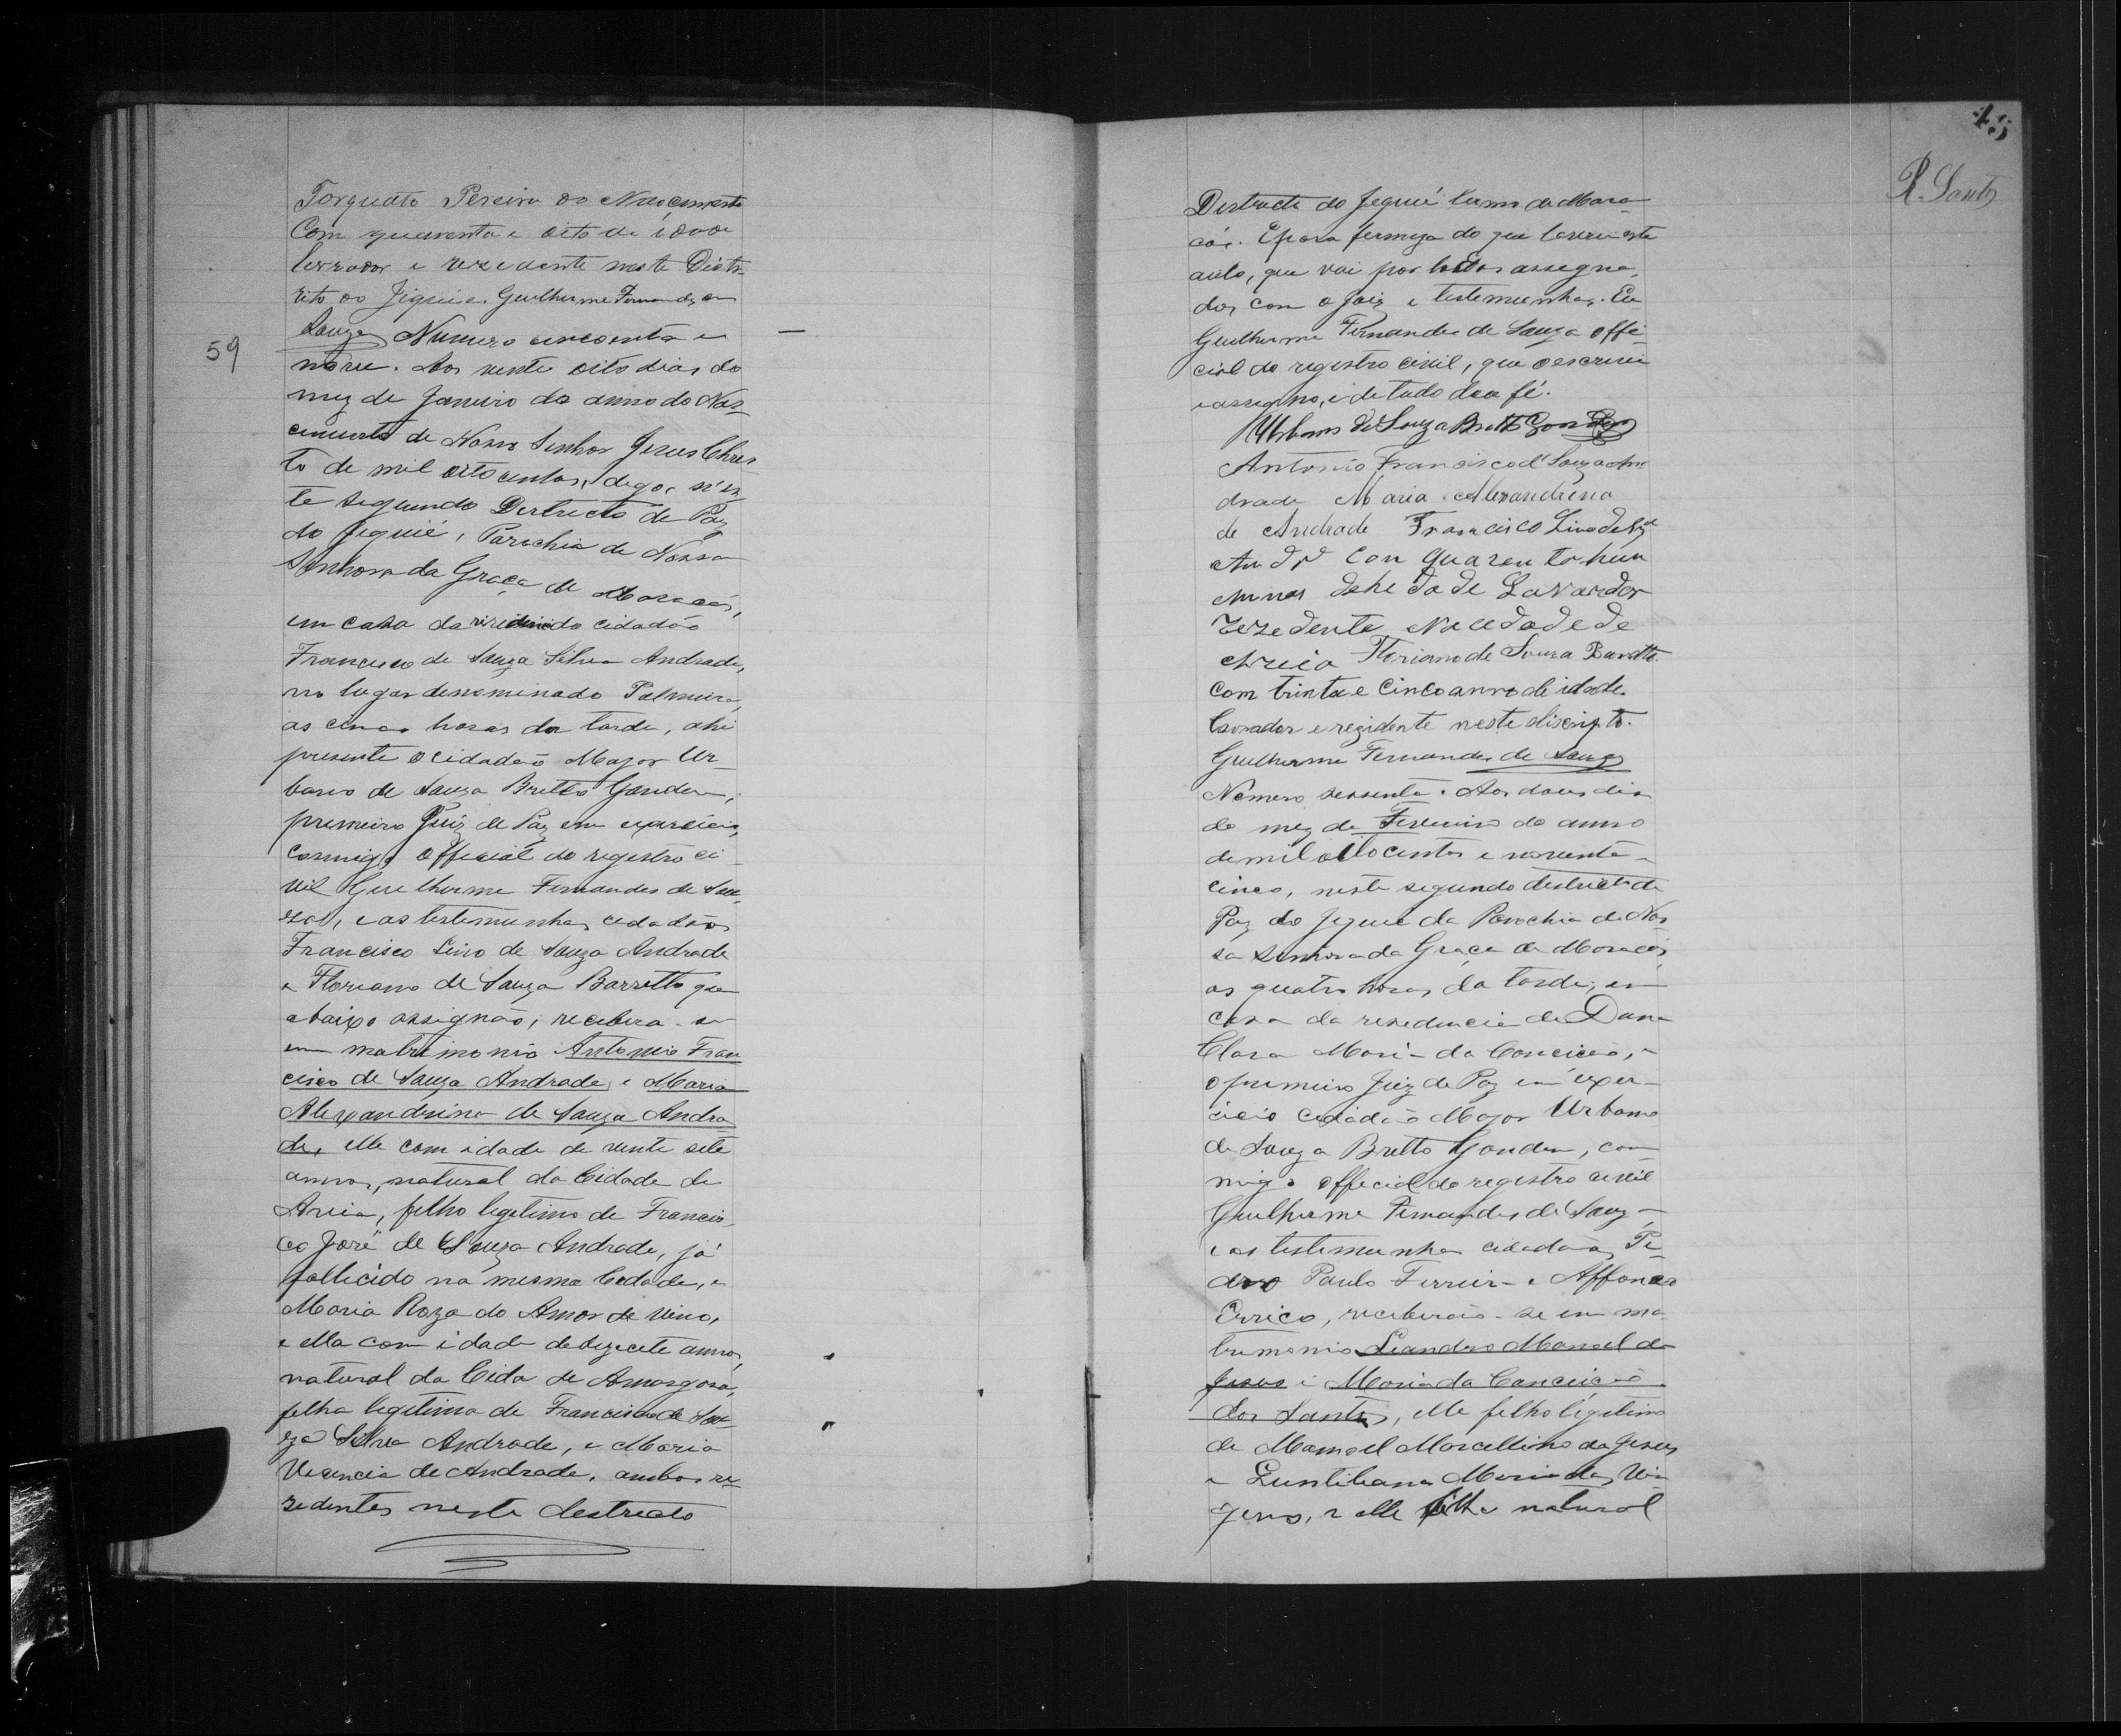 Torquato Pereira do Nascimento
Com quarenta e oito de idade
lavrador e rezedente neste Dist-
rito do Jiquié. Guilherme Fernandes de
Souza Numero cincoenta e
59
nove. Aos vente oito dias do
mez de Janeiro do anno do Nas-
cimento de Nosso Senhor Jesus Chris-
to de mil oito centos, digo, nes-
te segundo Destricto de Paz
do Jequié, Parochia de Nossa
Senhora da Graça de Maracás,
em casa da residencia do cidadão
Francisco de Souza Silva Andrade,
no lugar denominado Palmeira,
as cinco horas da tarde, ahi
presente o cidadão Major Ur-
bano de Souza Britto Gondim,
premeiro Juiz de Paz em exercicio,
commigo official do registro ci-
vil Guilherme Fernandes de Sou-
za, e as testemunhas cedadãos
Francisco Lino de Souza Andrade
e Floriano de Souza Barretto que
abaixo assegnão, recebera-se
em matrimonio Antonio Fran
cisco de Souza Andrade, e Maria
Alexandrina de Souza Andra
de, elle com idade de vente sete
annos, natural da Cidade de
Areia, felho legetimo de Francis-
co José de Souza Andrade, já
fallecido na mesma Cedade, e
Maria Roza do Amor de Vino,
e ella com idade de dezecete annos,
natural da Cida de Amargosa,
felha legitima de Francisco de Sou-
za Silva Andrade, e Maria
Vecencia de Andrade, ambos re-
zedentes neste destricto
45
R. Santos
Destricto do Jequié termo de Mara-
cás. E para fermeza do que lavrei este
auto, que vai por todos assegna-
dos com o Joiz e testemunhas. Eu
Guilherme Fernandes de Souza offi-
cial do registro civil, que o escrevi
e assegno, e de tudo dou fé.
Urbano de Souza Britto Gondim
Antonio Francisco d' Souza An-
drade Maria Alexandrina
de Andrade Francisco Lino de Sza
Andd Con quarenta hun
annos dehe da de Lavardor
rezedente na cedade de
Areia Floriano de Souza Barretto
com trinta e cinco anno de idade.
Lavrador e rezidente neste discripto.
Guilherme Fernandes de Souza
Nomero sessenta. Aos dous dia
do mez de Fevereiro do anno
de mil oitocentos e noventa e
cinco, neste segundo destricto de
Paz do Jequié da Parochia de Nos-
sa Senhora da Graça de Maracás,
as quatro horas da tarde, em
casa da resedencia de Dona
Clara Maria da Conceicão, e
o premeiro Juiz de Paz em exer-
cicio cedadão Major Urbano
de Souza Britto Gondim, com
migo official do registro civil
Guilherme Fernandes de Souza
e as testemunhas cidadãos Pe-
dro Paulo Ferreira e Affonso
Errico, receberão-se em ma-
tremonio Leandro Manoel de
Jesus e Maria da Conceicão
dos Santos, elle felho legitimo
de Manoel Marcellino de Jesus
e Luntiliana Maria das Vir-
gens, e elle filha natural